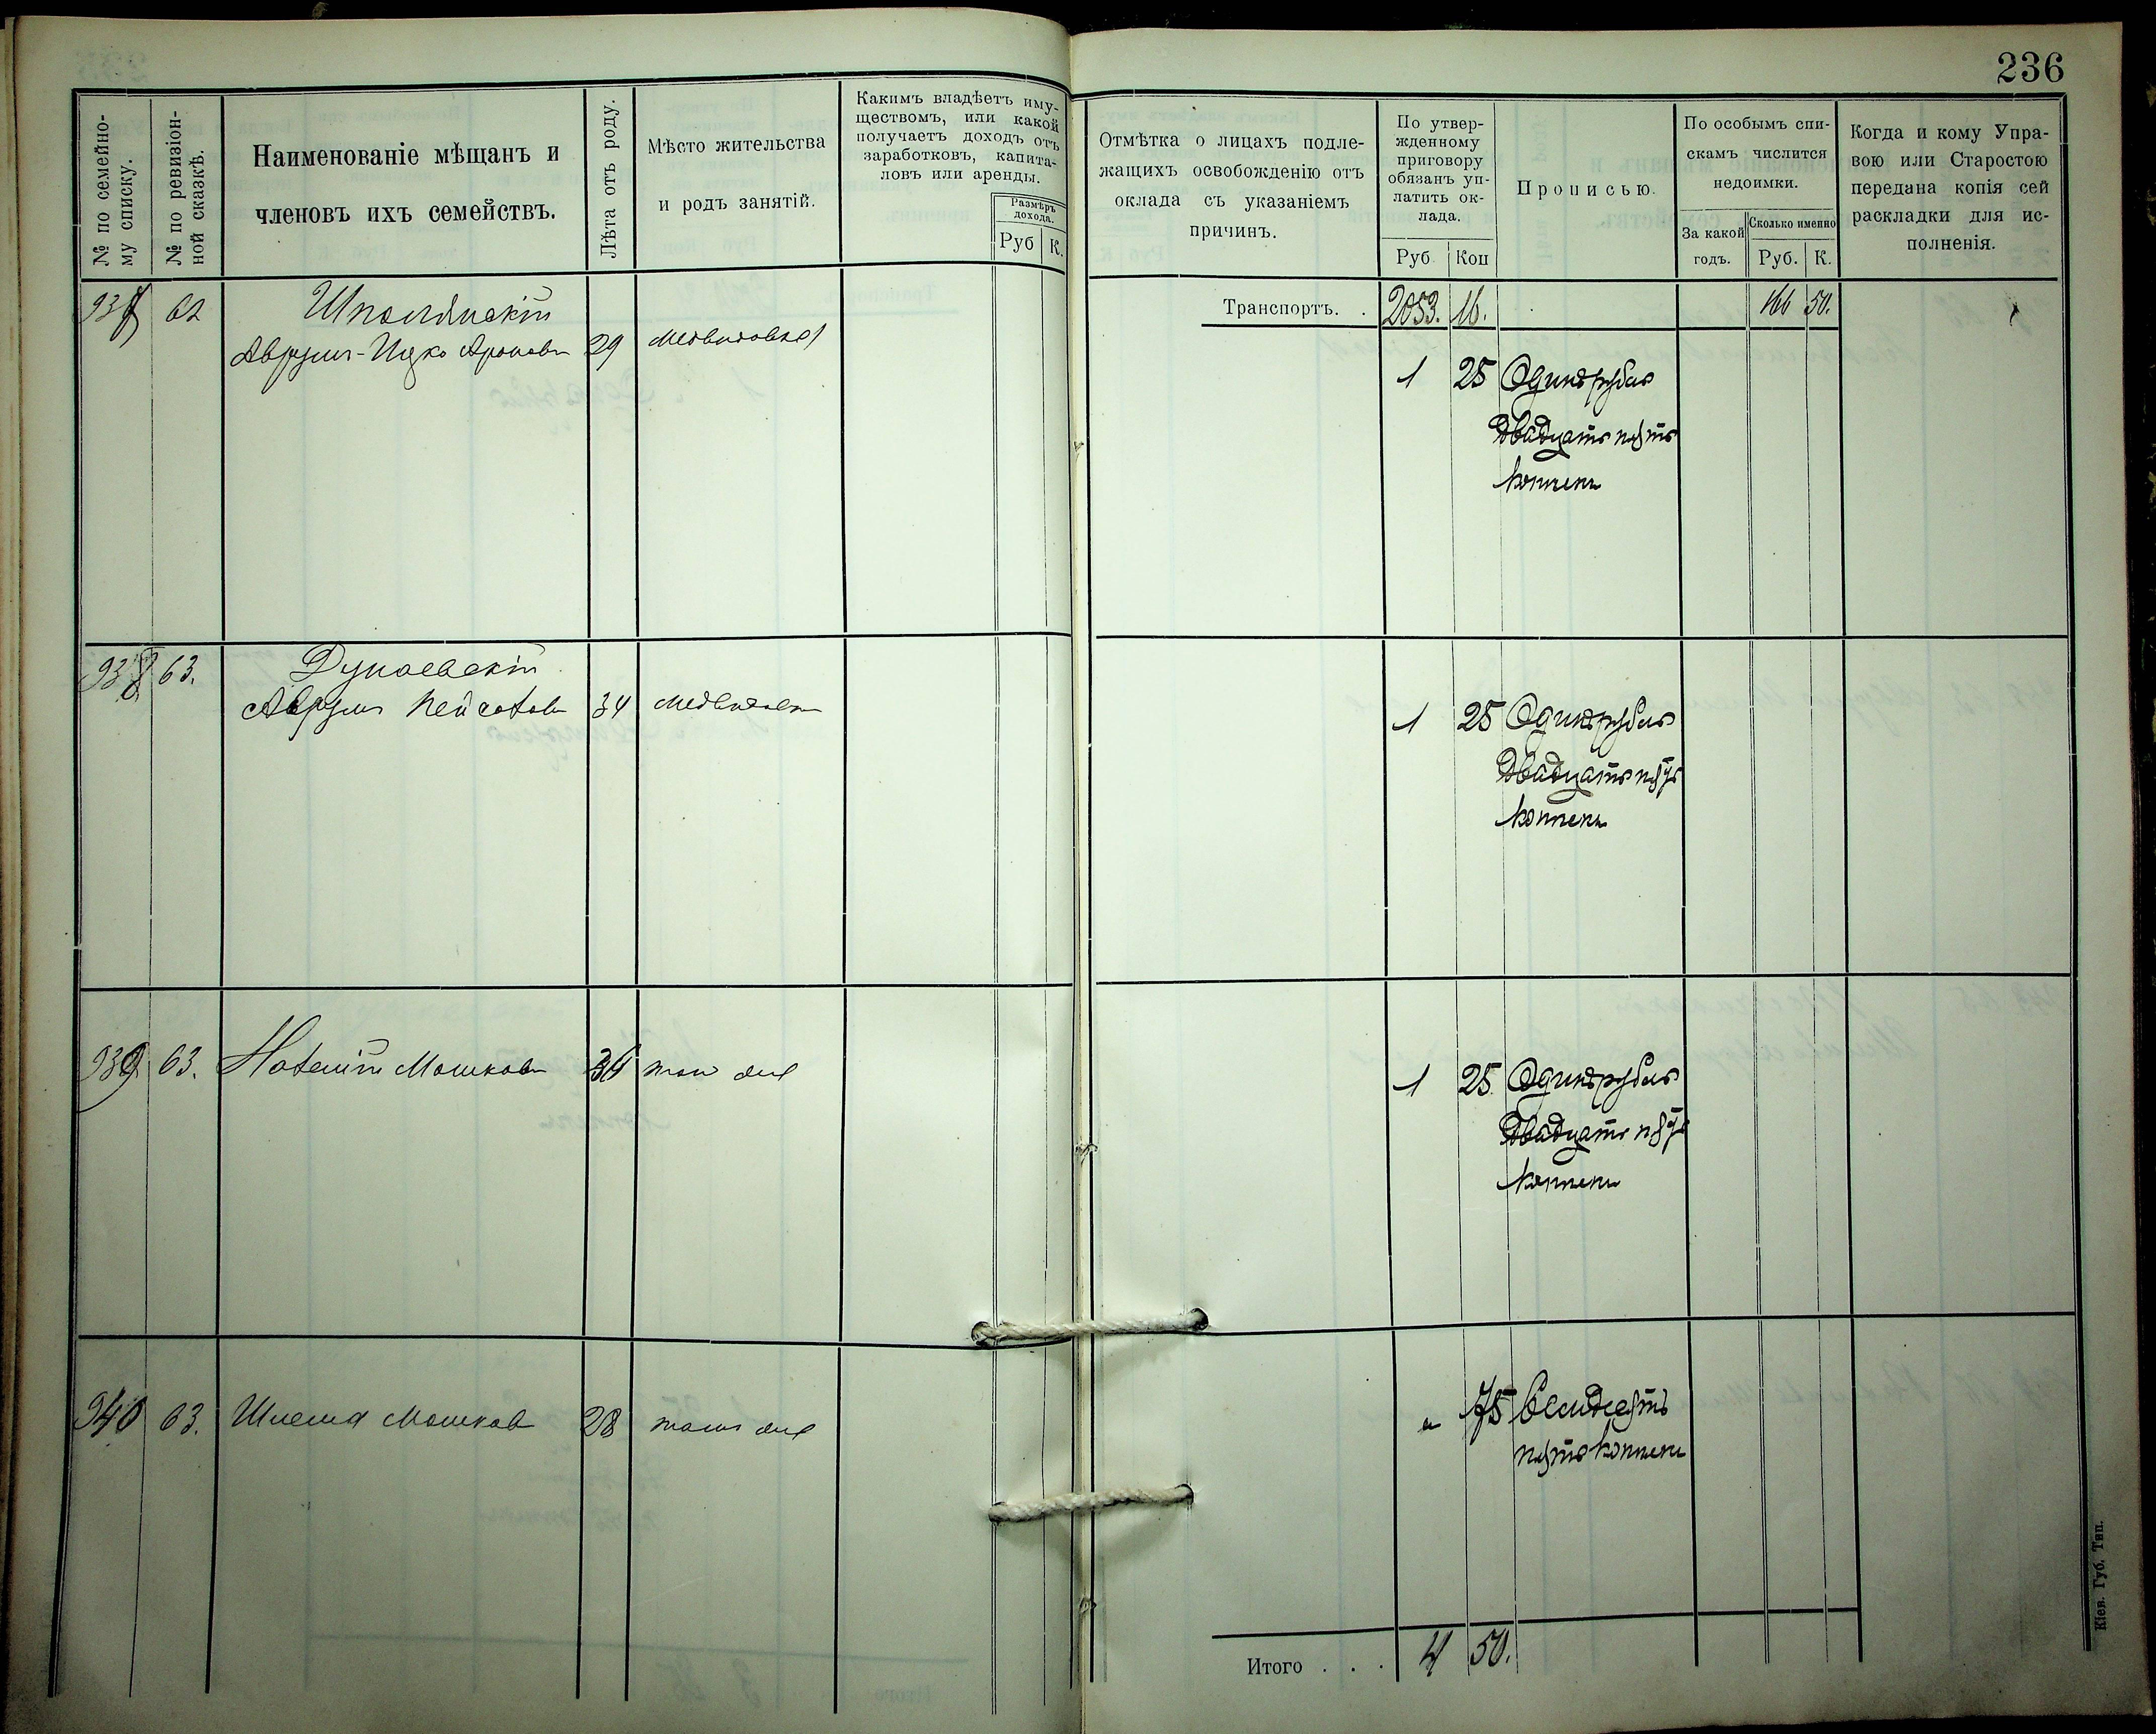 236
№ по семейно-
му списку.
№ по ревизіон-
ной сказкѣ.
Наименованіе мѣщанъ и
членовъ ихъ семействъ.
Лѣта отъ роду.
Мѣсто жительства
и родъ занятій.
Какимъ владѣетъ иму-
ществомъ, или какой
получаетъ доходъ отъ
заработковъ, капита-
ловъ или аренды.
Размѣръ
дохода.
Руб К.
Отмѣтка о лицахъ подле-
жащихъ освобожденію отъ
оклада съ указаніемъ
причинъ.
По утвер-
жденному
приговору
обязанъ уп-
латить ок-
лада.
Руб Коп
Прописью.
По особымъ спи-
скамъ числится
недоимки.
За какой
годъ.
Сколько именно
Руб. К.
Когда и кому Упра-
вою или Старостою
передана копія сей
раскладки для ис-
полненія.
Транспортъ. . 2053. 16. 166 50.
62 Шполянскій
Аврумъ-Ицко Ароновъ 29 Медвидовка
1 25 Одинъ рубль
двадцать пять
копеекъ
938 63. Дунаевскій
Аврумъ 34 Медвидовка
1 25 Одинъ рубль
двадцать пять
копеекъ
939 63. Мошковъ тамъ же
1 25 Одинъ рубль
двадцать пять
копеекъ
940 63. Шлема Мошковъ 28 тамъ же
" 75 Семдесять
пять копеекъ
Итого . . . 4 50.
Кіев. Губ. Тип.